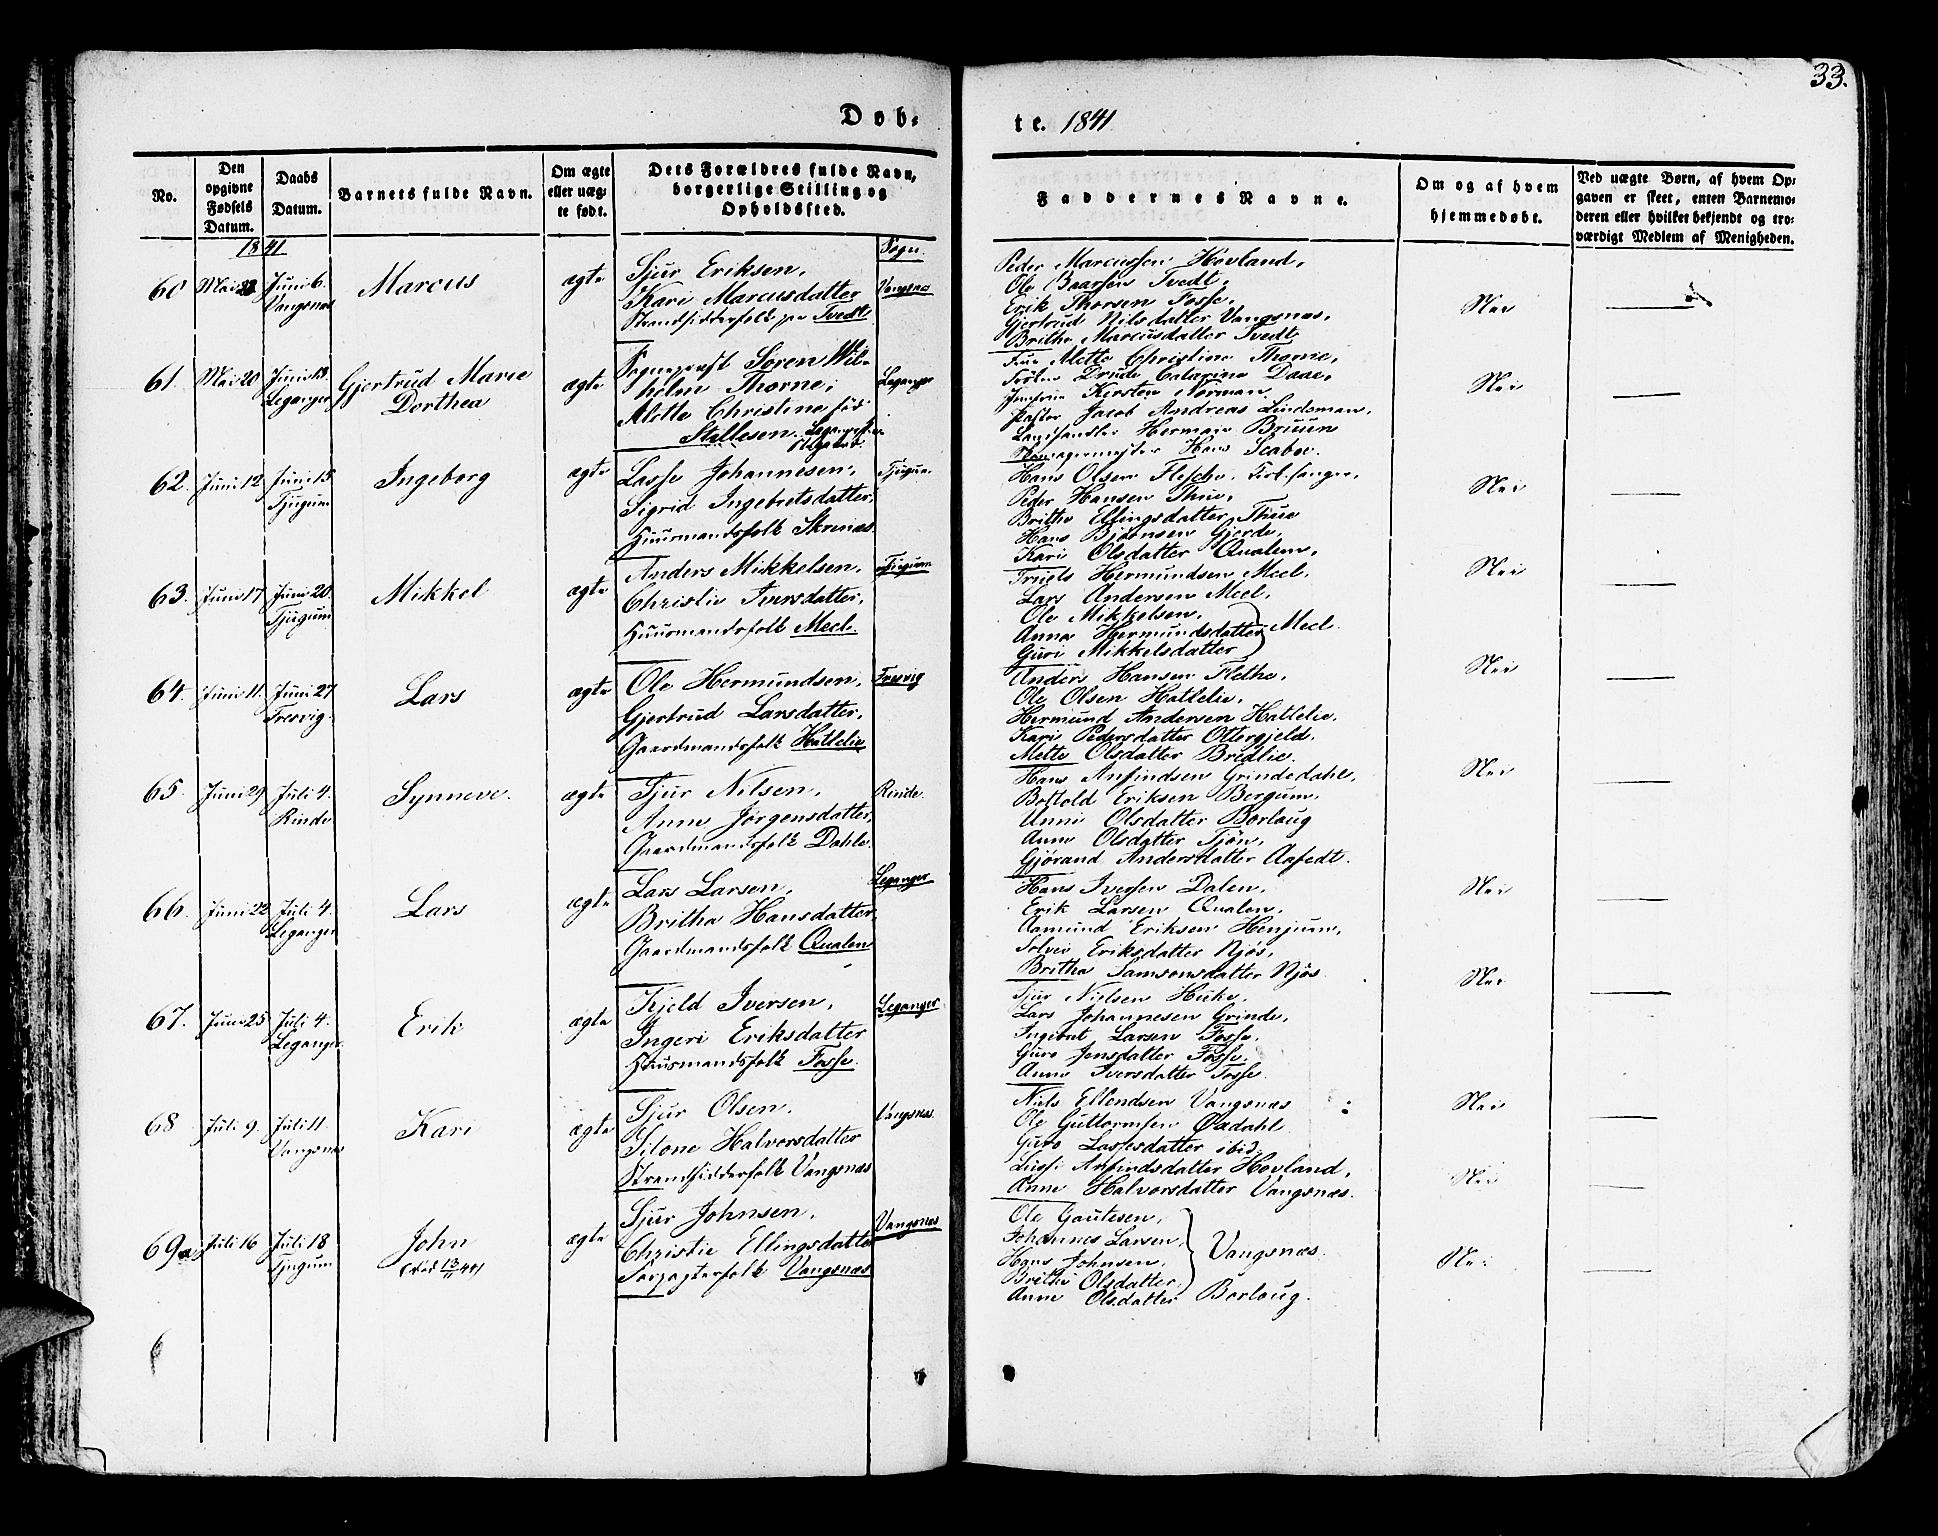 33.
Døb-
te. 1841
No.
Den opgivne Fødsels Datum.
Daabs Datum.
Barnets fulde Navn.
Om ægte eller uægte født.
Dets Forældres fulde Navn, borgerlige Stilling og Opholdssted.
Faddernes Navne.
Om og af hvem hjemmedøbt.
Ved uægte Børn, af hvem Opgaven er skeet, enten Barnemoderen eller hvilket bekjendt og troværdigt Medlem af Menigheden.
1841
Sogn.
60 Mai 23 Juni 6. Vangsnæs
Marcus
ægte
Sjur Eriksen,
Kari Marcusdatter
Strandsidderfolk paa Tvedt
Vangsnæs
Peder Marcussen Hovland,
Ole Baarsen Tvedt,
Erik Thorsen Fosse,
Gjertrud Nilsdatter Vangsnæs,
Britha Marcusdatter Tvedt
Nei
61. Mai 20 Juni 13. Leganger
Gjertrud Marie
Dorthea
ægte
Sognepræst Søren Wil-
helm Thorne,
Mette Christine fød
Stellesen.
Leganger
Fru Mette Christine Thorne,
Frøken Drude Catarina Daae,
Jomfrue Kirsten Norman.
Pastor Jacob Andreas Lindsman,
Landhandler Herman Bruun
Hans Scaboe.
Nei
62. Juni 12 Juni 13 Tjugum
Ingeborg
ægte
Lasse Johannesen,
Sigrid Ingebretsdatter,
Huusmandsfolk Skrenæs.
Tjugum
Hans Olsen Flesche, Kirkesanger,
Peder Hansen Thue,
Britha Ellingsdatter Thue
Hans Bjørnsen Gjerde,
Kari Olsdatter Qualem,
Nei
63. Juni 17 Juni 20. Tjugum
Mikkel
ægte
Anders Mikkelsen,
Christie Iversdatter,
Huusmandsfolk Meel.
Tjugum
Truels Hermundsen Meel,
Lars Andersen Meel,
Ole Mikkelsen,
Anna Hermundsdatter Meel.
Guri Mikkelsdatter
Nei
64. Juni 11. Juni 27 Fresvig.
Lars
ægte
Ole Hermundsen,
Gjertrud Larsdatter,
Gaardmandsfolk Hatlelie
Fresvig
Anders Hansen Flethe,
Ole Olsen Hatlelie,
Hermund Andersen Hatlelie.
Kari Pedersdatter Ottergjeld.
Mette Olsdatter Bredlie.
Nei
65. Juni 29 Juli 4. Rinde
Synneve.
ægte
Sjur Nilsen,
Anne Jørgensdatter,
Gaardmandsfolk Dahle.
Rinde.
Hans Anfindsen Grindedahl,
Bottold Eriksen Bergum,
Anni Olsdatter Borlaug
Anne Olsdatter Tjøn,
Gjørand Andersdatter Aafedt.
Nei
66. Juni 22 Juli 4. Leganger
Lars
ægte
Lars Larsen,
Britha Hansdatter,
Gaardmandsfolk Qualen
Leganger
Hans Iversen Dalen,
Erik Larsen Qualen,
Aamund Eriksen Henjum,
Solvei Eriksdatter Njøs,
Britha Samsonsdatter Njøs.
Nei
67. Juni 25 Juli 4. Leganger
Erik
ægte
Kjeld Iversen,
Ingeri Eriksdatter
Huusmandsfolk Fosse.
Leganger
Sjur Nielsen Huke,
Lars Johannesen Grinde,
Ingebrit Larsen Fosse,
Guro Jensdatter Fosse,
Anne Iversdatter Fosse
Nei
68 Juli 9. Juli 11. Vangsnæs
Kari
ægte
Sjur Olsen,
Sitone Halvorsdatter
Strandsidderfolk Vangsnæs
Vangsnæs.
Niels Ellendsen Vangsnæs
Ole Guttormsen Ødadahl
Guro Lassesdatter ibid.
Lussi Anfindsdatter Hovland,
Anne Halvorsdatter Vangsnæs.
Nei
Nei
69 Juli 16 Juli 18 Tjugum
John
(død 13/11 44)
ægte
Sjur Johnsen,
Christie Ellingsdatter
Forpagterfolk Vangsnæs
Vangsnæs
Ole Gautesen,
Johannes Larsen,
Hans Johnsen, Vangsnæs.
Brithe Olsdatter,
Anne Olsdatter Borlaug.
Nei